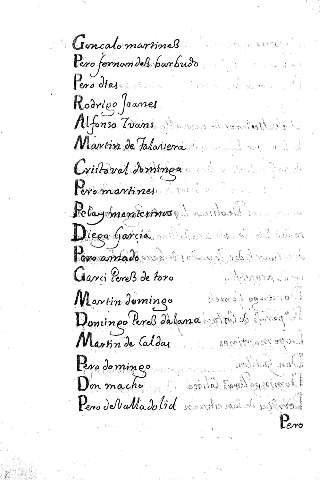 Goncalo martineß
Pero fernandeß barbudo
Pero dias
Rodrigo Joanes
Alfonso Iuans
Martin de Talavera
Cristoval dominga
Pero martines
Pelay monterino
Diega Garçia
Pero amado
Garçi Pereß de toro
Martin domingo
Domingo Pereß dalana
Martin de Caldas
Pero domingo
Don macho
Pero de Valladolid
Pero